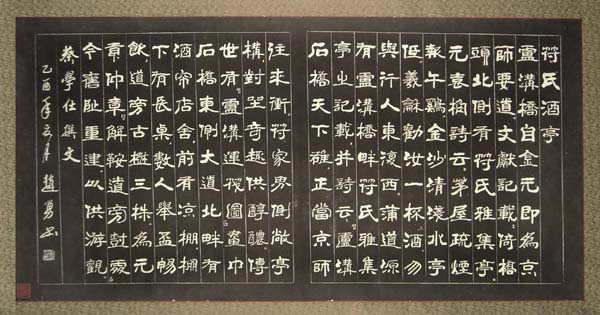 符氏酒亭
盧溝橋自金元即為京
師要道文獻記載倚橋
頭北側有符氏雅集亭
元袁桷詩云茅屋疏煙
報午鷄金沙清淺水亭
低羲龢勸汝一杯酒勿
與行人東復西蒲道源
有盧溝橋畔符氏雅集
亭之記載并詩云盧溝
石橋天下雄正當京師
往來衝符家界側敞亭
構對坐奇趣供醇醲傳
世有盧溝運筏圖畫巾
石橋東側大道北畔有
酒帘店舍前有涼棚棚
下有長桌數人舉盃暢
飲道旁古槐三株為元
貢仲章解鞍道旁處
今舊趾重建以供游觀
蔡學仕撰文
乙酉年月趙勇書